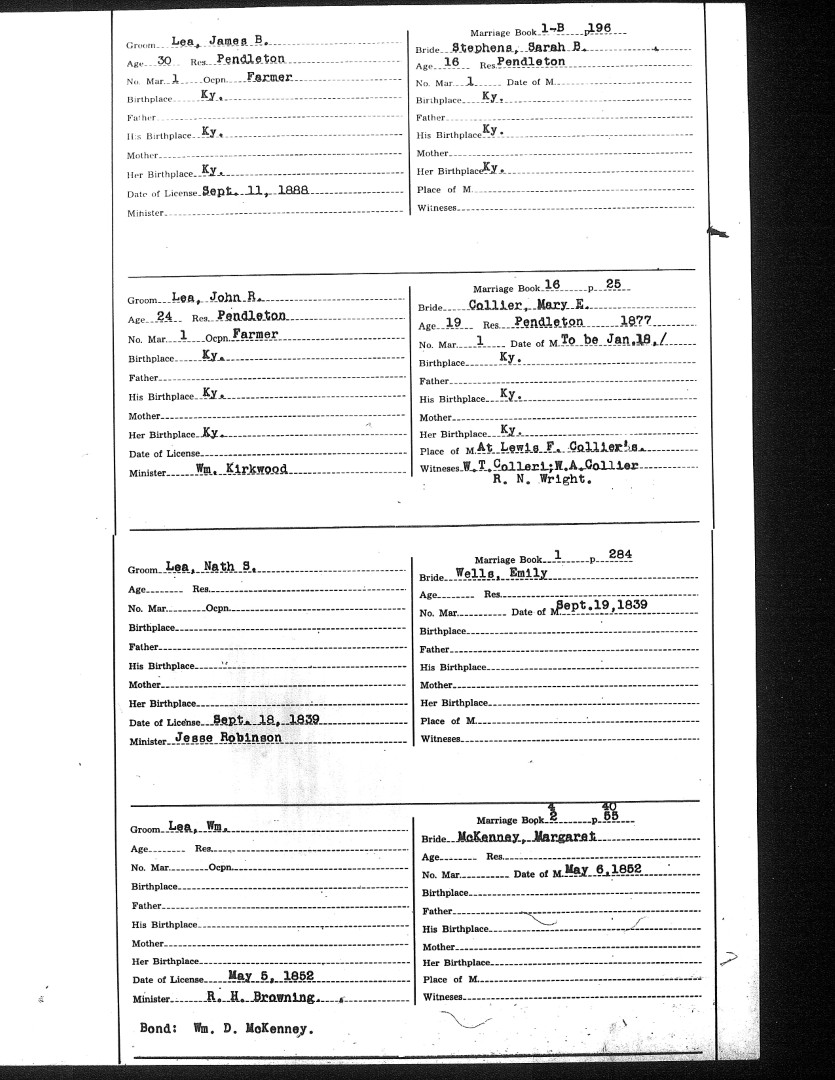 Groom Lea, James B.
Age 30 Res. Pendleton
No. Mar. 1 Ocpn. Farmer
Birthplace Ky.
Father
His Birthplace Ky.
Mother
Her Birthplace Ky.
Date of License Sept. 11, 1888
Minister
Marriage Book 1-B p196
Bride Stephens, Sarah B.
Age 16 Res. Pendleton
No. Mar. 1 Date of M.
Birthplace Ky.
Father
His Birthplace Ky.
Mother
Her Birthplace Ky.
Place of M.
Witneses
Groom Lea, John R.
Age 24 Res. Pendleton
No. Mar. 1 Ocpn. Farmer
Birthplace Ky.
Father
His Birthplace Ky.
Mother
Her Birthplace Ky.
Date of License
Minister Wm. Kirkwood
Marriage Book 16 p. 25
Bride Collier, Mary E.
Age 19 Res. Pendleton 1877
No. Mar. 1 Date of M. To be Jan.18,/
Birthplace Ky.
Father
His Birthplace Ky.
Mother
Her Birthplace Ky.
Place of M. At Lewis F. Collier's.
Witneses W.T.Colleri;W.A.Collier
R. N. Wright.
Groom Lea, Nath S.
Age Res.
No. Mar. Ocpn.
Birthplace
Father
His Birthplace
Mother
Her Birthplace
Date of License Sept. 18, 1839
Minister Jesse Robinson
Marriage Book 1 p. 284
Bride Wells, Emily
Age Res.
No. Mar. Date of M. Sept.19,1839
Birthplace
Father
His Birthplace
Mother
Her Birthplace
Place of M.
Witneses
Groom Lea, Wm.
Age Res.
No. Mar. Ocpn.
Birthplace
Father
His Birthplace
Mother
Her Birthplace
Date of License May 5, 1852
Minister R. H. Browning.
Bond: Wm. D. McKenney.
4 40
Marriage Book 2 p. 55
Bride McKenney, Margaret
Age Res.
No. Mar. Date of M. May 6,1852
Birthplace
Father
His Birthplace
Mother
Her Birthplace
Place of M.
Witneses